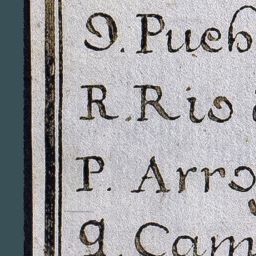 9. Pueb
R. Rio
P. Arroy
q. Cam